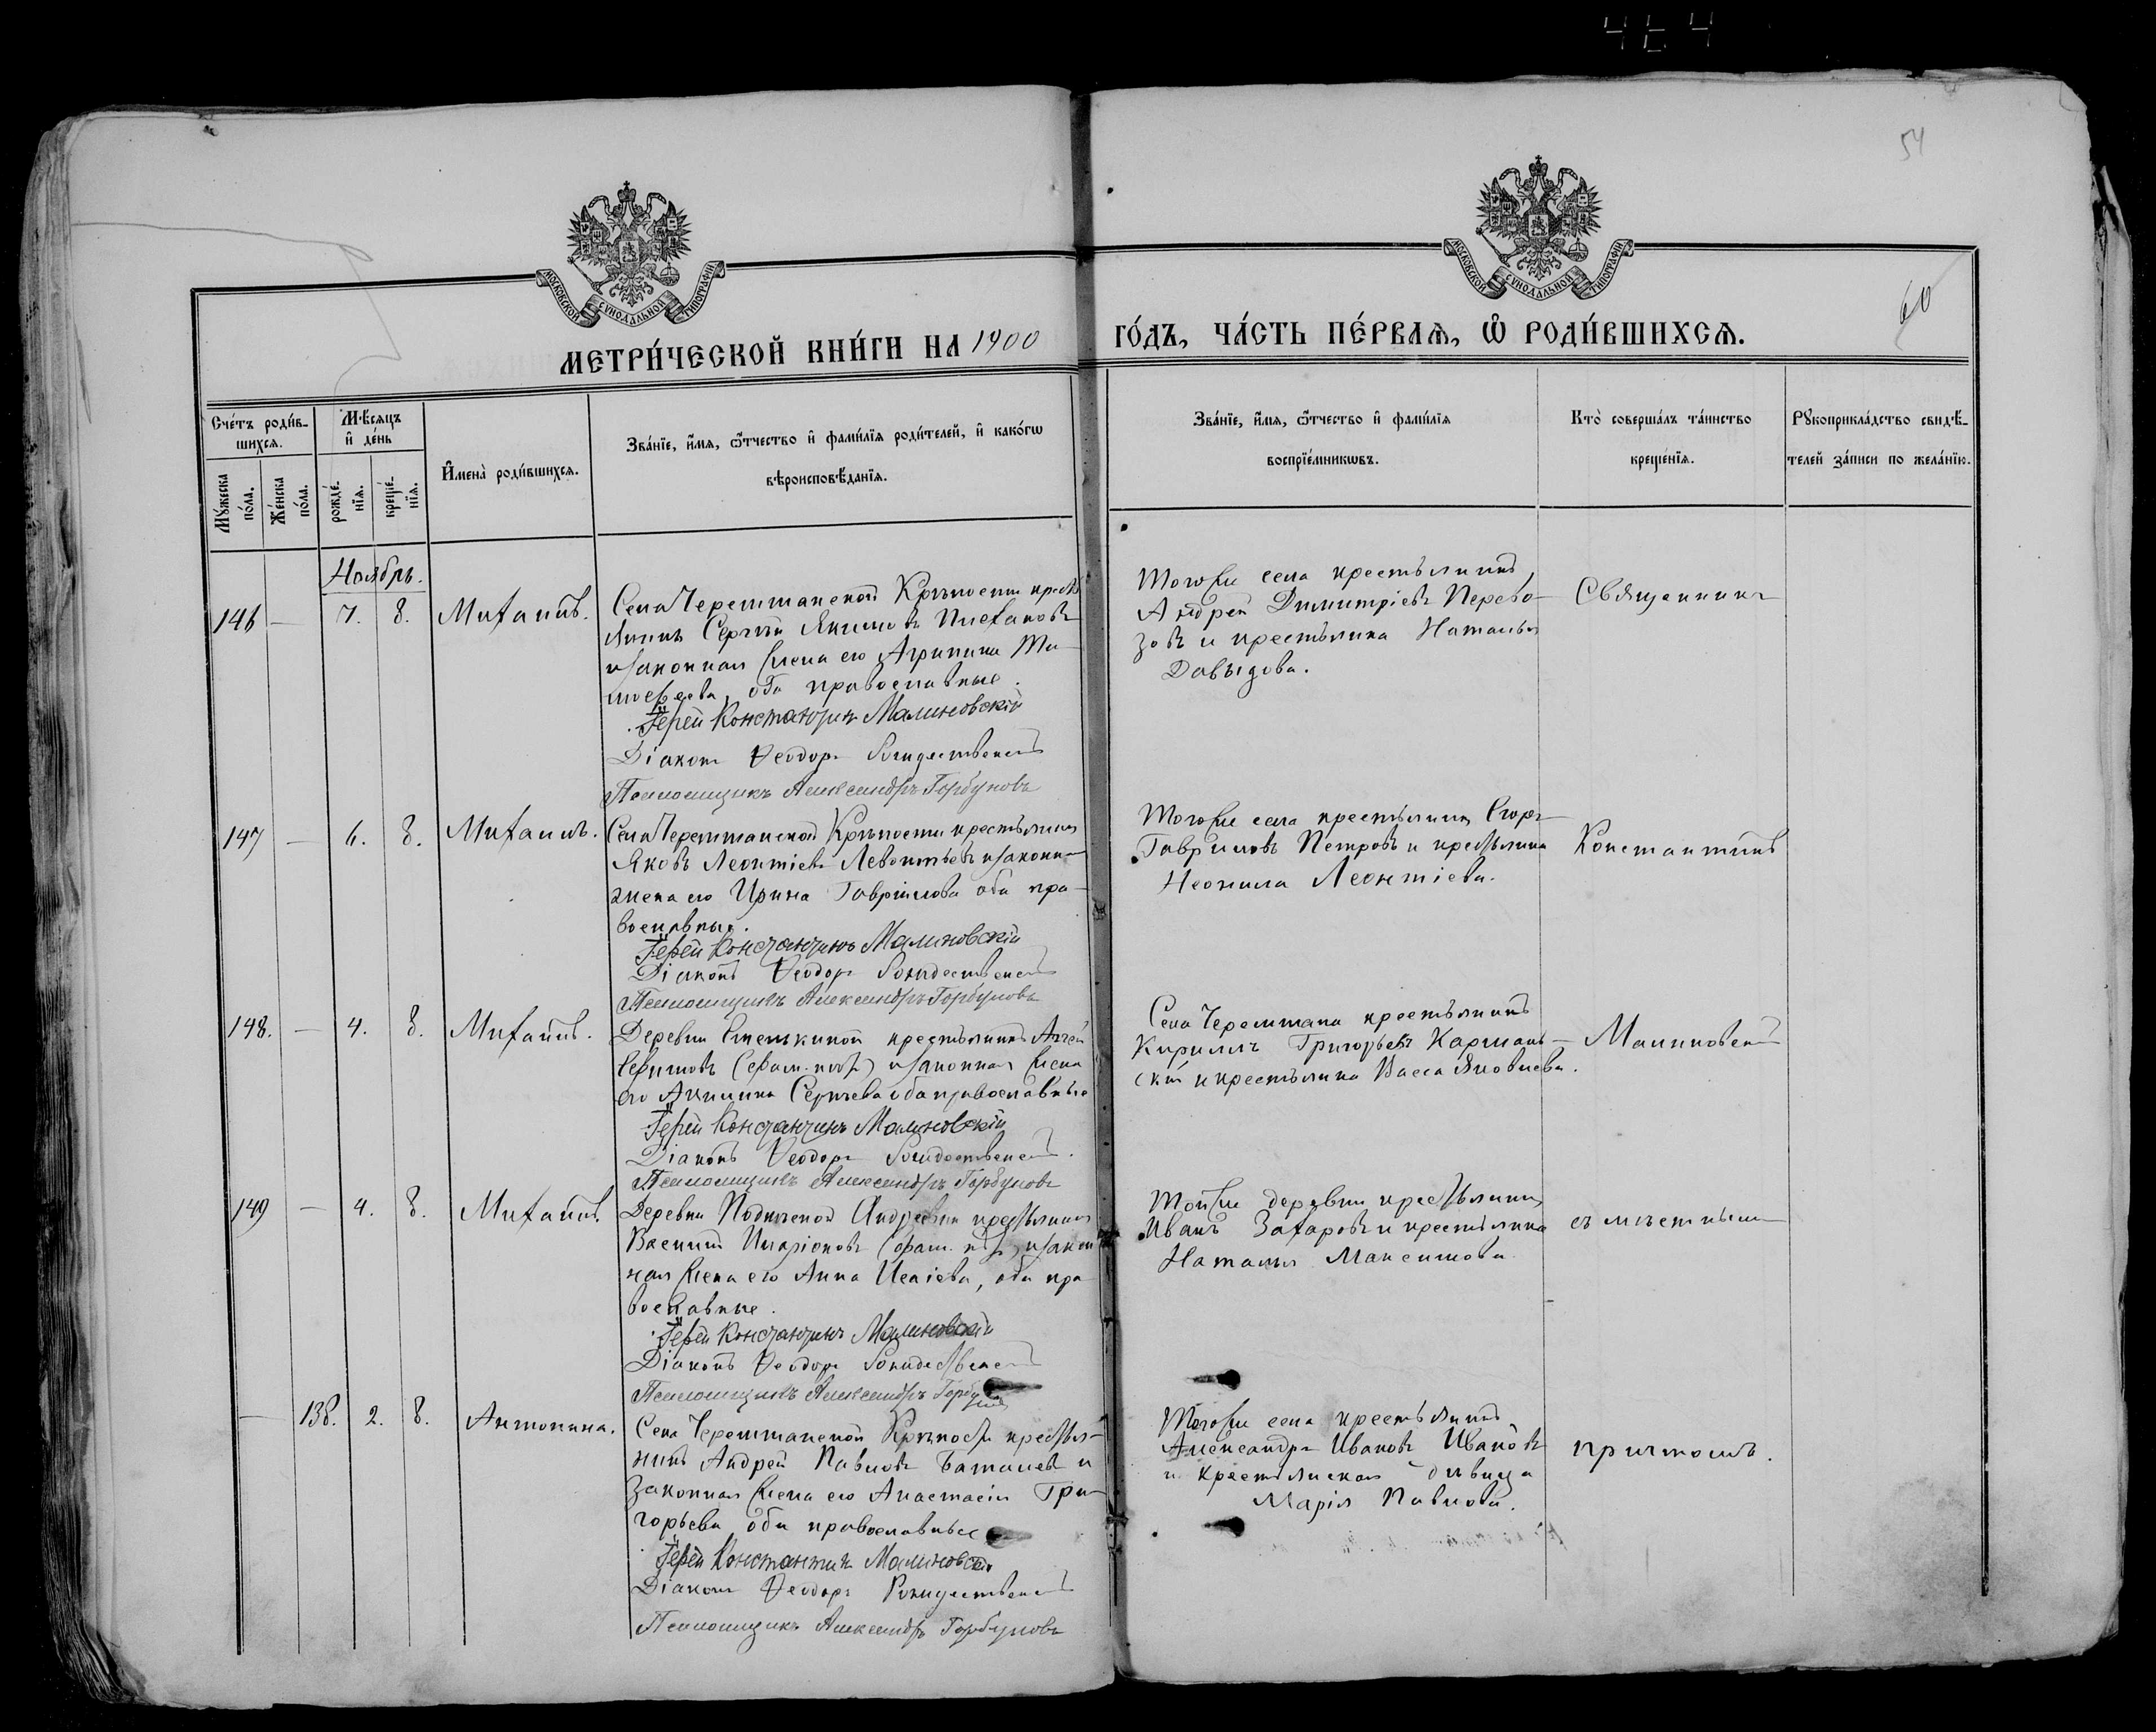 54
МОСКОВСКОЙ СѴНОДАЛЬНОЙ ТИПОГРАФІИ
МОСКОВСКОЙ СѴНОДАЛЬНОЙ ТИПОГРАФІИ
60
МЕТРИ́ЧЕСКОЙ КНИ́ГИ НА 1900 ГО́ДЪ, ЧА́СТЬ ПЕ́РВАѦ, Ѽ РОДИ́ВШИХСѦ.
Сче́тъ роди́в-
шихсѧ.
Мꙋ́жеска по́ла.
Же́нска по́ла.
Мѣ́сѧцъ и҆ де́нь
рожде́-нїѧ.
креще́-нїѧ.
И҆мена̀ роди́вшихсѧ.
Зва́нїе, и҆́мѧ, ѻ҆́тчество и҆ фами́лїѧ роди́телей, и҆ како́гѡ
вѣроисповѣ́данїѧ.
Зва́нїе, и҆́мѧ, ѻ҆́тчество и҆ фами́лїѧ
воспрїе́мникѡвъ.
Кто̀ соверша́лъ та́инство
креще́нїѧ.
Рꙋкоприкла́дство свидѣ́-
телей за́писи по жела́нїю.
Ноябрь.
146 — 7. 8. Михаилъ.
Села Черемшанской Крѣпости крестья
нинъ Сергѣй Якимовъ
и законная жена его Агрипина Ти-
мофеева, оба православные.
Іерей Константинъ Малиновскій
Діаконъ Ѳеодоръ Рождественскій
Псаломщикъ Александръ Горбуновъ
Того же села крестьянинъ
Андрей Димитріевъ Перево-
зовъ и крестьянка Наталья
Давыдова.
Священникъ
147 — 6. 8. Михаилъ.
Села Черемшанской Крѣпости крестьянинъ
Яковъ Леонтіевъ Левонтьевъ и законн.
жена его Ирина Гавріилова оба пра-
вославные.
Іерей Константинъ Малиновскій
Діаконъ Ѳеодоръ Рождественскій
Псаломщикъ Александръ Горбуновъ
Того же села крестьянинъ Егоръ
Гавриловъ Петровъ и крестьянка
Неонила Леонтіева.
Константинъ
148. — 4. 8. Михаилъ.
Деревни крестьянинъ
и законная жена
его Акилина Сергѣева оба православные
Іерей Константинъ Малиновскій
Діаконъ Ѳеодоръ Рождественскій.
Псаломщикъ Александръ Горбуновъ
Села Черемшана крестьянинъ
Кириллъ Григорьевъ Карман-
скій и крестьянка Васса Яковлева.
Малиновскій
149 — 4. 8. Михаилъ.
Деревни Андреевки крестьянинъ
Василій Иларіоновъ и закон
ная жена его Анна Исаіева, оба пра
вославные.
Іерей Константинъ Малиновскій
Діаконъ Ѳеодоръ Рождественскій
Псаломщикъ Александръ Горбуновъ
Той же деревни крестьянинъ
Иванъ Захаровъ и крестьянка
Наталья Максимова.
съ мѣстнымъ
— 138. 2. 8. Антонина.
Села Черемшанской Крѣпости крестья-
нинъ Андрей Павловъ Баталевъ и
законная жена его Анастасія Гри-
горьева оба православные
Іерей Константинъ Малиновскій
Діаконъ Ѳеодоръ Рождественскій
Псаломщикъ Александръ Горбуновъ
Того же села крестьянинъ
Александръ Ивановъ Ивановъ
и крестьянская дѣвица
Марія Павлова.
причтомъ.